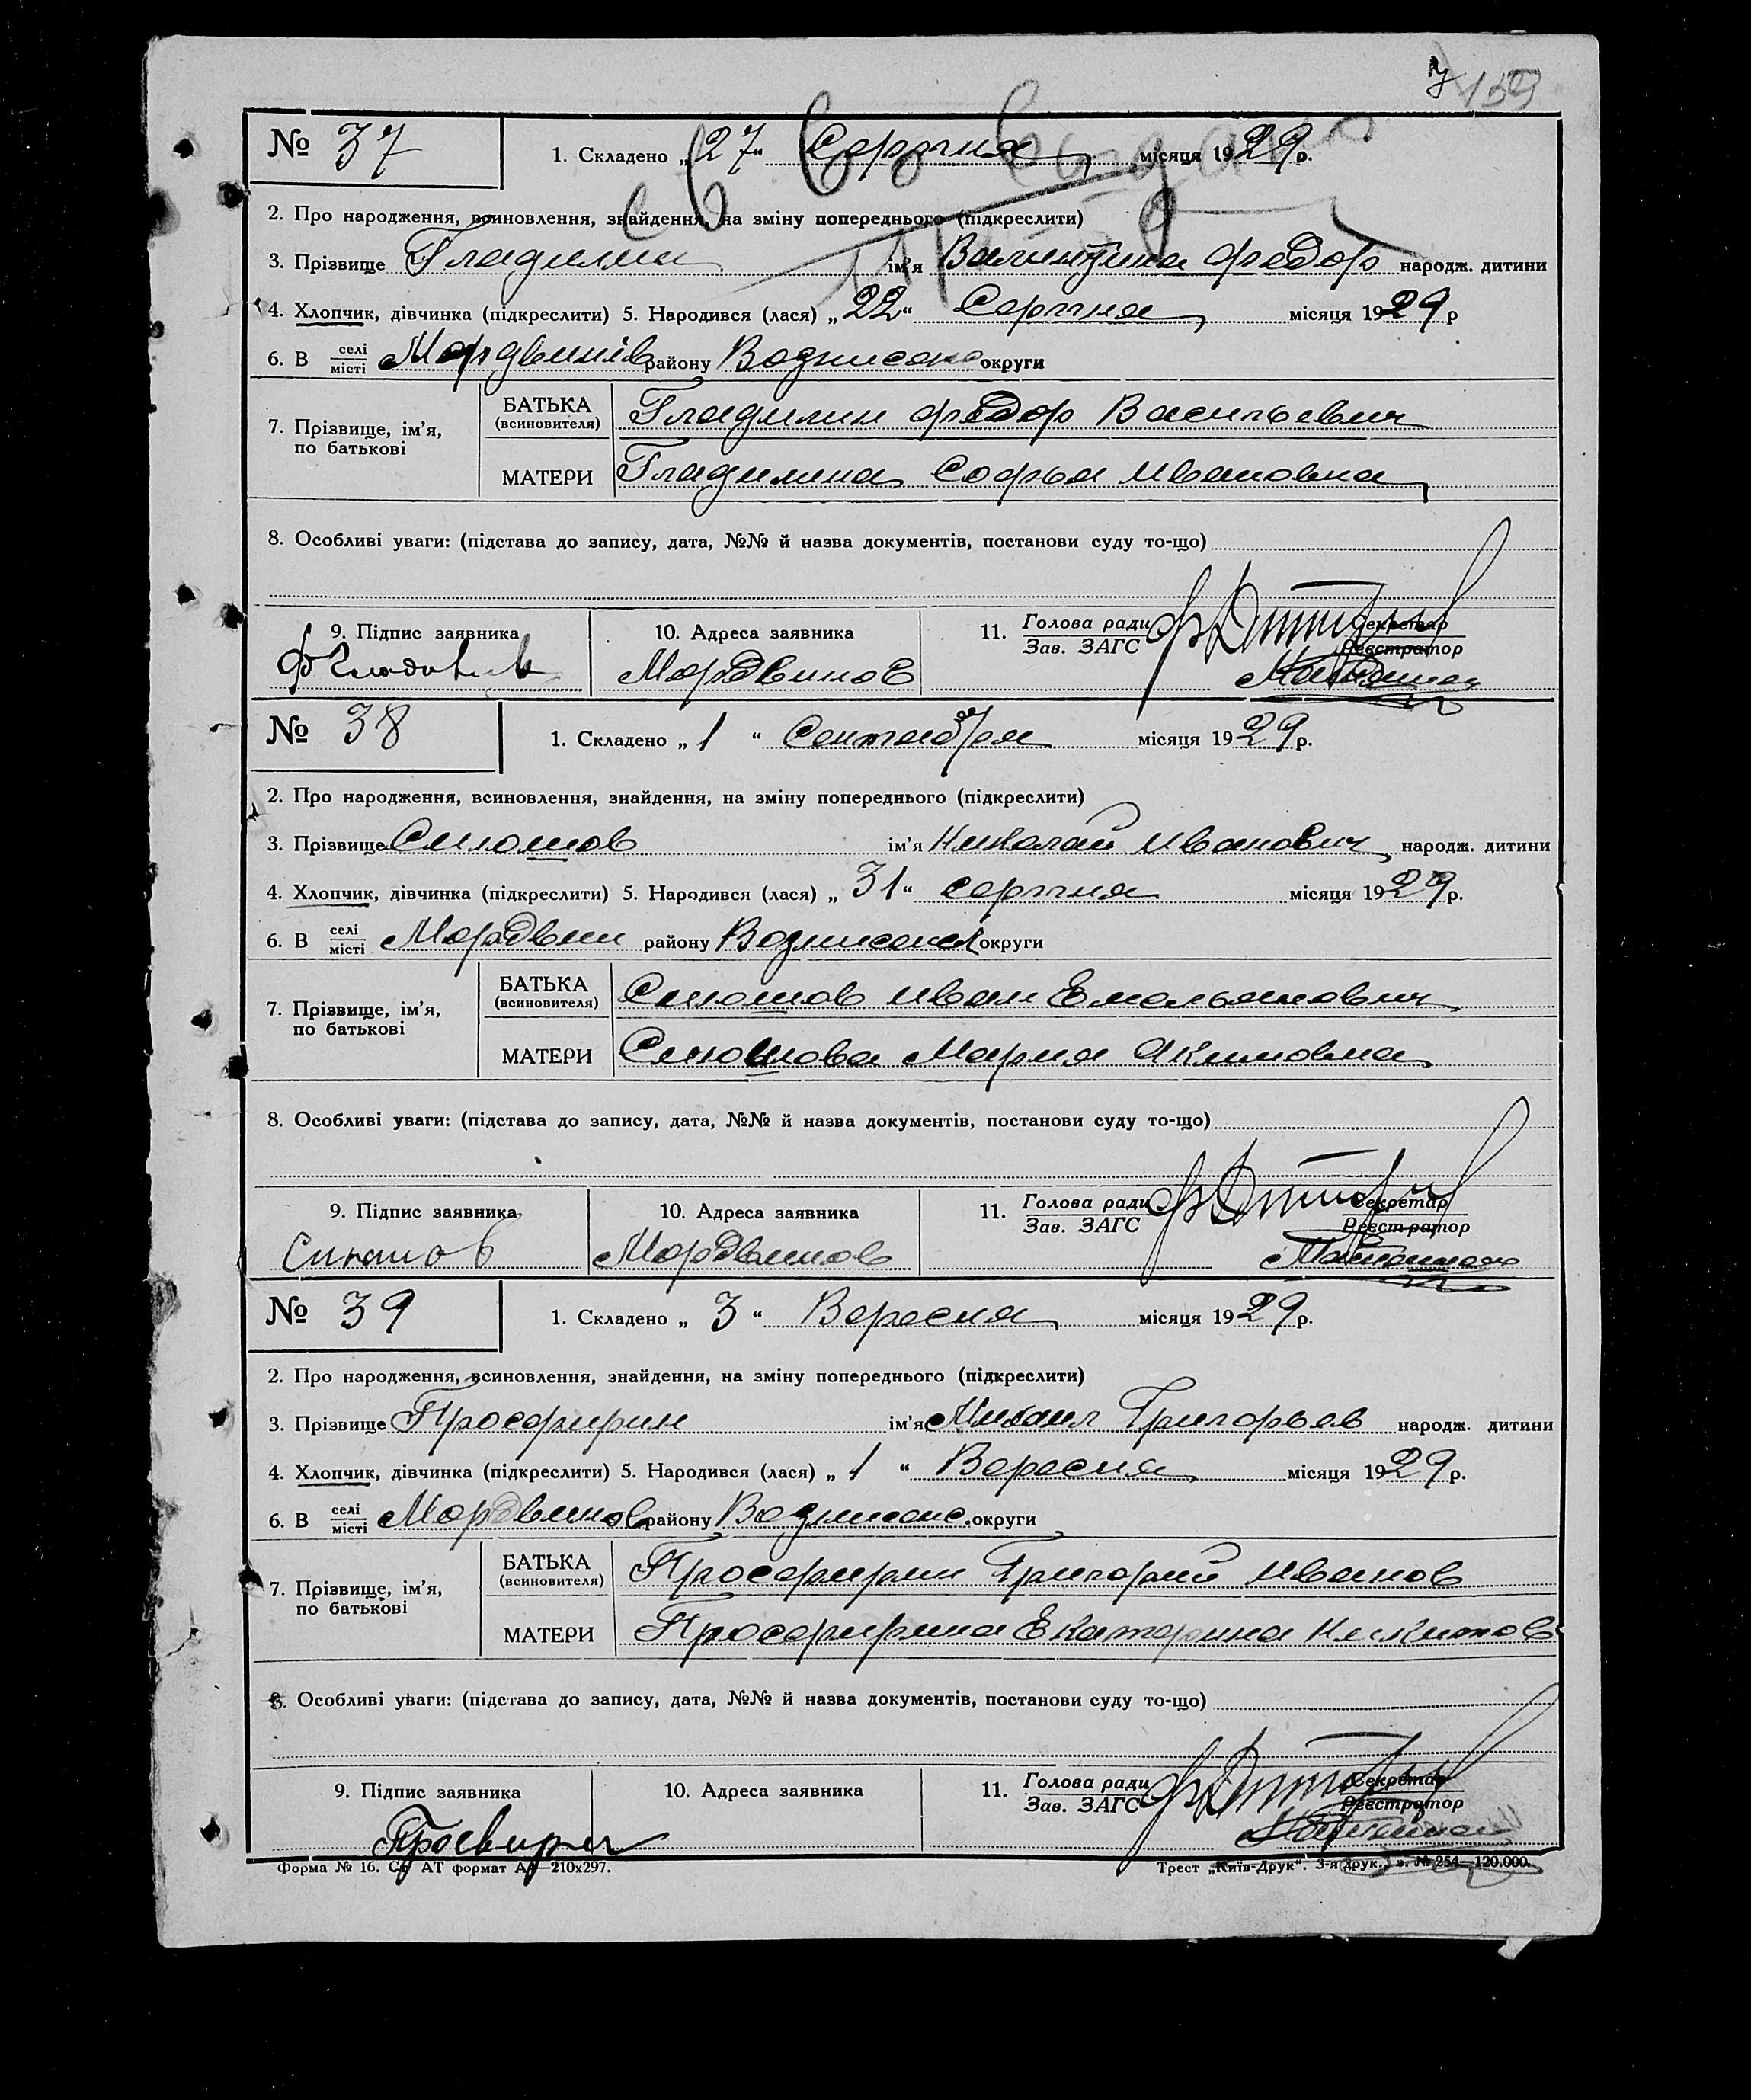 159
№ 37
1. Складено „27“ Серпня місяця 1929 р.
2. Про народження, всиновлення, знайдення, на зміну попереднього (підкреслити)
3. Прізвище Гладилин ім'я Валентина Федор народж. дитини
4. Хлопчик, дівчинка (підкреслити) 5. Народився (лася) „22“ Серпня місяця 1929 р
6. В селі місті Мордвинів району Вознисенс округи
7. Прізвище, ім'я, по батькові
БАТЬКА (всиновителя) Гладилин Федор Васильевич
МАТЕРИ Гладилина Софья Ивановна
8. Особливі уваги: (підстава до запису, дата, №№ й назва документів, постанови суду то-що)
9. Підпис заявника 10. Адреса заявника 11. Голова ради Зав. ЗАГС Секретар Реєстратор
Мордвинов
№ 38
1. Складено „1“ Сентября місяця 1929 р.
2. Про народження, всиновлення, знайдення, на зміну попереднього (підкреслити)
3. Прізвище Синюшов ім'я Николай Иванович народж. дитини
4. Хлопчик, дівчинка (підкреслити) 5. Народився (лася) „31“ серпня місяця 1929 р.
6. В селі місті Мордвин району Вознисенск округи
7. Прізвище, ім'я, по батькові
БАТЬКА (всиновителя) Синюшов Иван Емельянович
МАТЕРИ Синюшова Мария Акимовна
8. Особливі уваги: (підстава до запису, дата, №№ й назва документів, постанови суду то-що)
9. Підпис заявника 10. Адреса заявника 11. Голова ради Зав. ЗАГС Секретар Реєстратор
Мордвинов
№ 39
1. Складено „3“ Вересня місяця 1929 р.
2. Про народження, всиновлення, знайдення, на зміну попереднього (підкреслити)
3. Прізвище Просфирин ім'я Михаил Григорьев народж. дитини
4. Хлопчик, дівчинка (підкреслити) 5. Народився (лася) „1“ Вересня місяця 1929 р.
6. В селі місті Мордвинов району Вознисенс. округи
7. Прізвище, ім'я, по батькові
БАТЬКА (всиновителя) Просфирин Григорий Иванов
МАТЕРИ Просфирина Екатерина Никитов
8. Особливі уваги: (підстава до запису, дата, №№ й назва документів, постанови суду то-що)
9. Підпис заявника 10. Адреса заявника 11. Голова ради Зав. ЗАГС Секретар Реєстратор
Просвирин
Форма № 16. АТ формат А4—210х297. Трест „Київ-Друк“. 3-я друк. з. № 254—120.000.